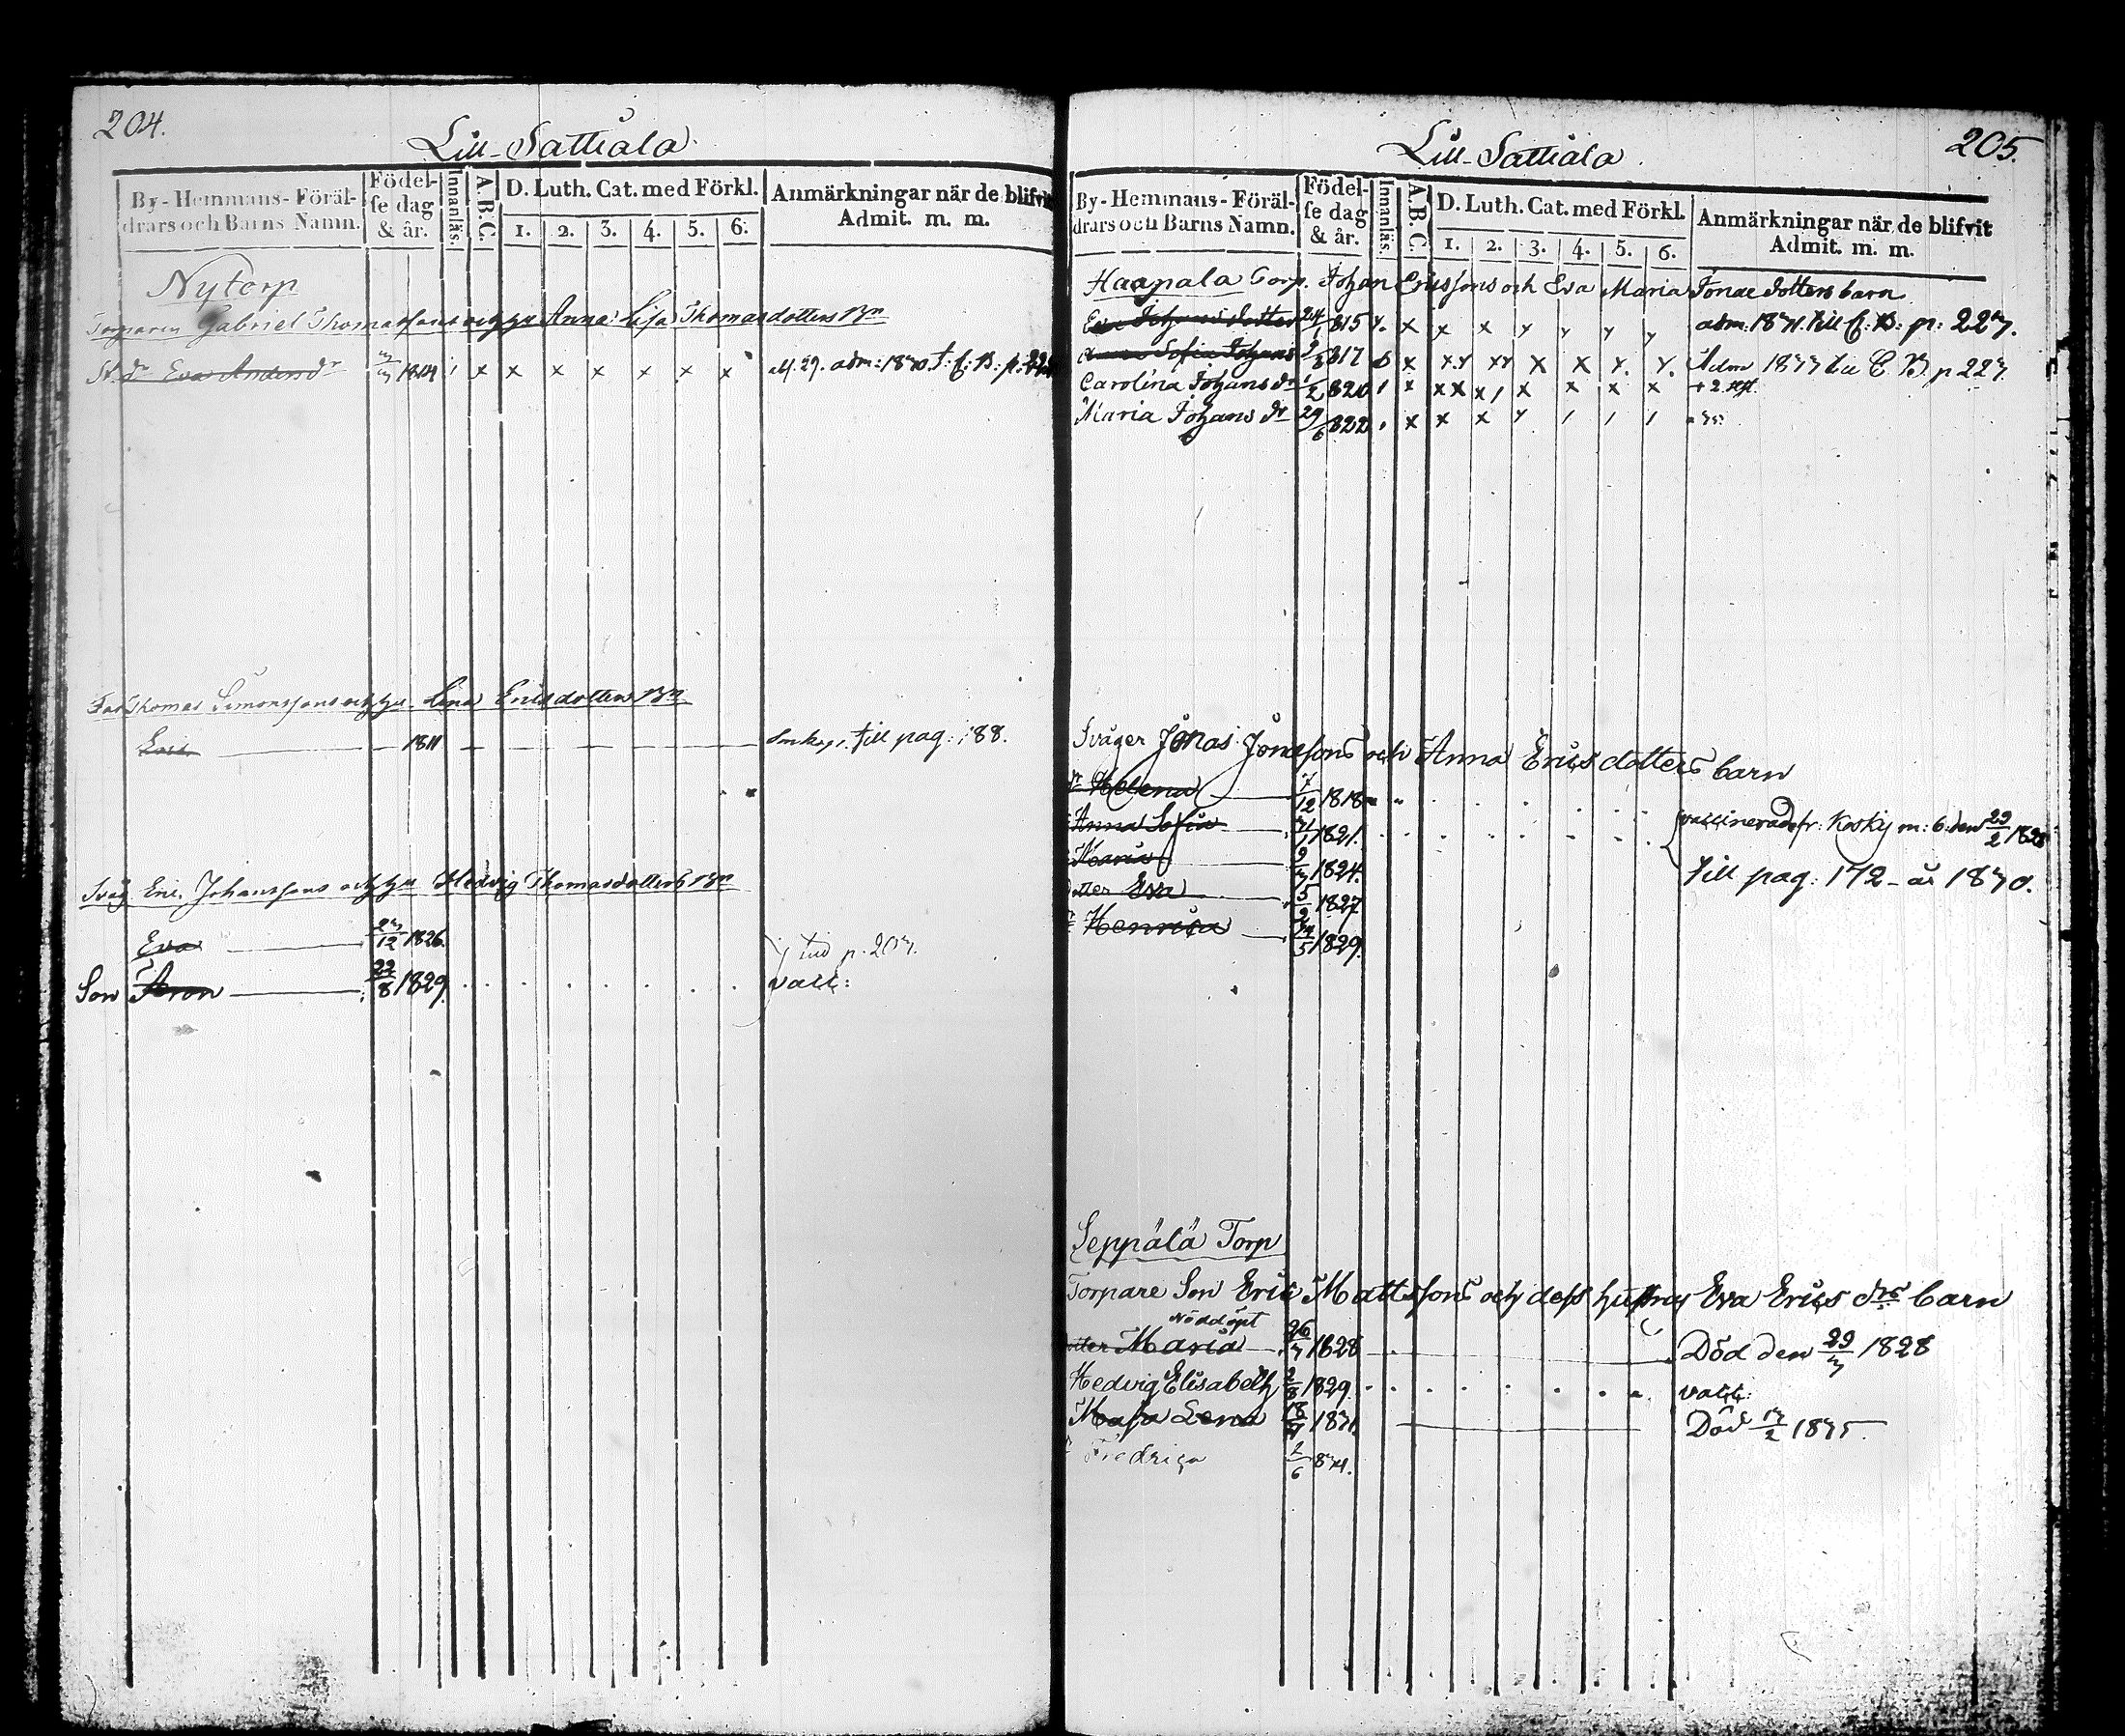 204.
Lill-Sattiala
By-Hemmans-Föräl-
drars och Barns Namn.
Födel-
se dag
& år.
Innanläs.
A.B.C.
D. Luth. Cat. med Förkl.
1. 2. 3. 4. 5. 6.
Anmärkningar när de blifvit
Admit. m. m.
Nytorp
Torparen Gabriel Thomassons och hu Anna Lisa Thomasdotters Bn
St. dr Eva Andersdr 1814 x x x x x x x adm: 1830 t. C: B: p:
Thomas Simonssons och hu Lena Ericsdotters Bn
1811 till pag: 188.
Svåg Eric Johanssons och hu Hedvig Thomasdotters Bn
Eva 23/12 1826.
p. 203.
Son Aron 22/8 1829. vacc:
205.
Lill-Sattiala
By-Hemmans-Föräl-
drars och Barns Namn.
Födel-
se dag
& år.
Innanläs.
A.B.C.
D. Luth. Cat. med Förkl.
1. 2. 3. 4. 5. 6.
Anmärkningar när de blifvit
Admit. m. m.
Haapala Torp. Johan Ericssons och Eva Maria Jonaedotters barn
Eva Johans dotter 24/1 815 adm: 1831. till C: B: p: 227.
Sofia Johans 817 Adm 1833 till C B p 227.
Carolina Johans dr 1/2 820
Maria Johans dr 29/6 822
Svåger Jonas Jonassons och Anna Ericsdotters barn
dr Helena 7/12 1818
Anna Sofia 1821. vaccinerade fr: Kosky m: 6: den 29/2 1828
Maria 1824. till pag: 172 - år 1830.
dotter Eva 5/2 1827
Henrica 24/5 1829.
Seppälä Torp
Torpare Son Eric Mattssons och dess hustru Eva Erics drs barn
Nöddöpt
dotter Maria 26/7 1828 Död den 29/7 1828
Hedvig Elisabeth 2/8 1829. vacc:
Maja Lena 18/ 1831. Död 13/2 1835.
Fredrica 2/6 834.